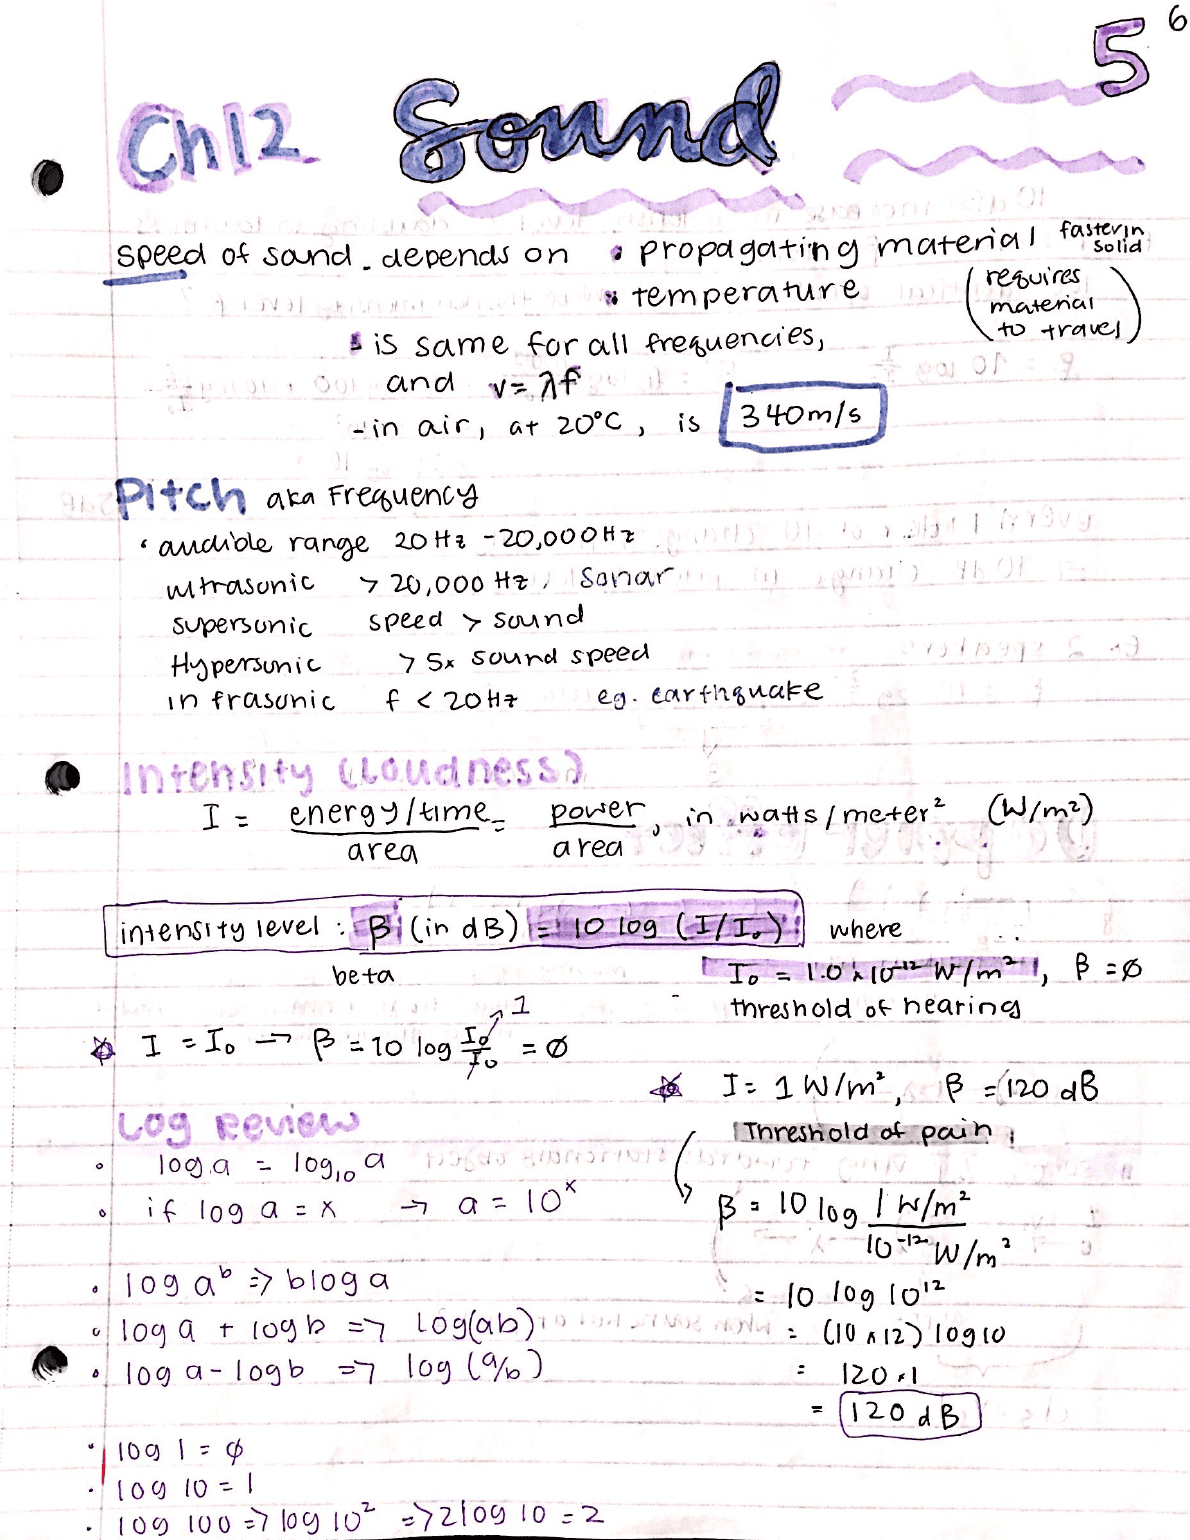 6
5
Ch12 Sound
speed of sound - depends on • propagating material faster in solid
• temperature (requires material to travel)
• is same for all frequencies,
and v = λf
- in air, at 20°C, is 340m/s
Pitch aka Frequency
• audible range 20Hz - 20,000Hz
ultrasonic > 20,000 Hz, Sonar
supersonic speed > sound
Hypersonic > 5x sound speed
infrasonic f < 20Hz eg. earthquake
Intensity (Loudness)
I = energy/time / area = power / area, in watts/meter² (W/m²)
intensity level: β (in dB) = 10 log (I/I₀) where
beta
I₀ = 1.0 x 10⁻¹² W/m², β = ∅
threshold of hearing
☆ I = I₀ → β = 10 log I₀/I₀ ↗ 1 = ∅
☆ I = 1 W/m², β = 120 dB
Threshold of pain
β = 10 log 1 W/m² / 10⁻¹² W/m²
= 10 log 10¹²
= (10 x 12) log 10
= 120 • 1
= 120 dB
Log Review
• log a = log₁₀ a
• if log a = x → a = 10ˣ
• log aᵇ => b log a
• log a + log b => log(ab)
• log a - log b => log (a/b)
• log 1 = ∅
• log 10 = 1
• log 100 => log 10² => 2 log 10 = 2